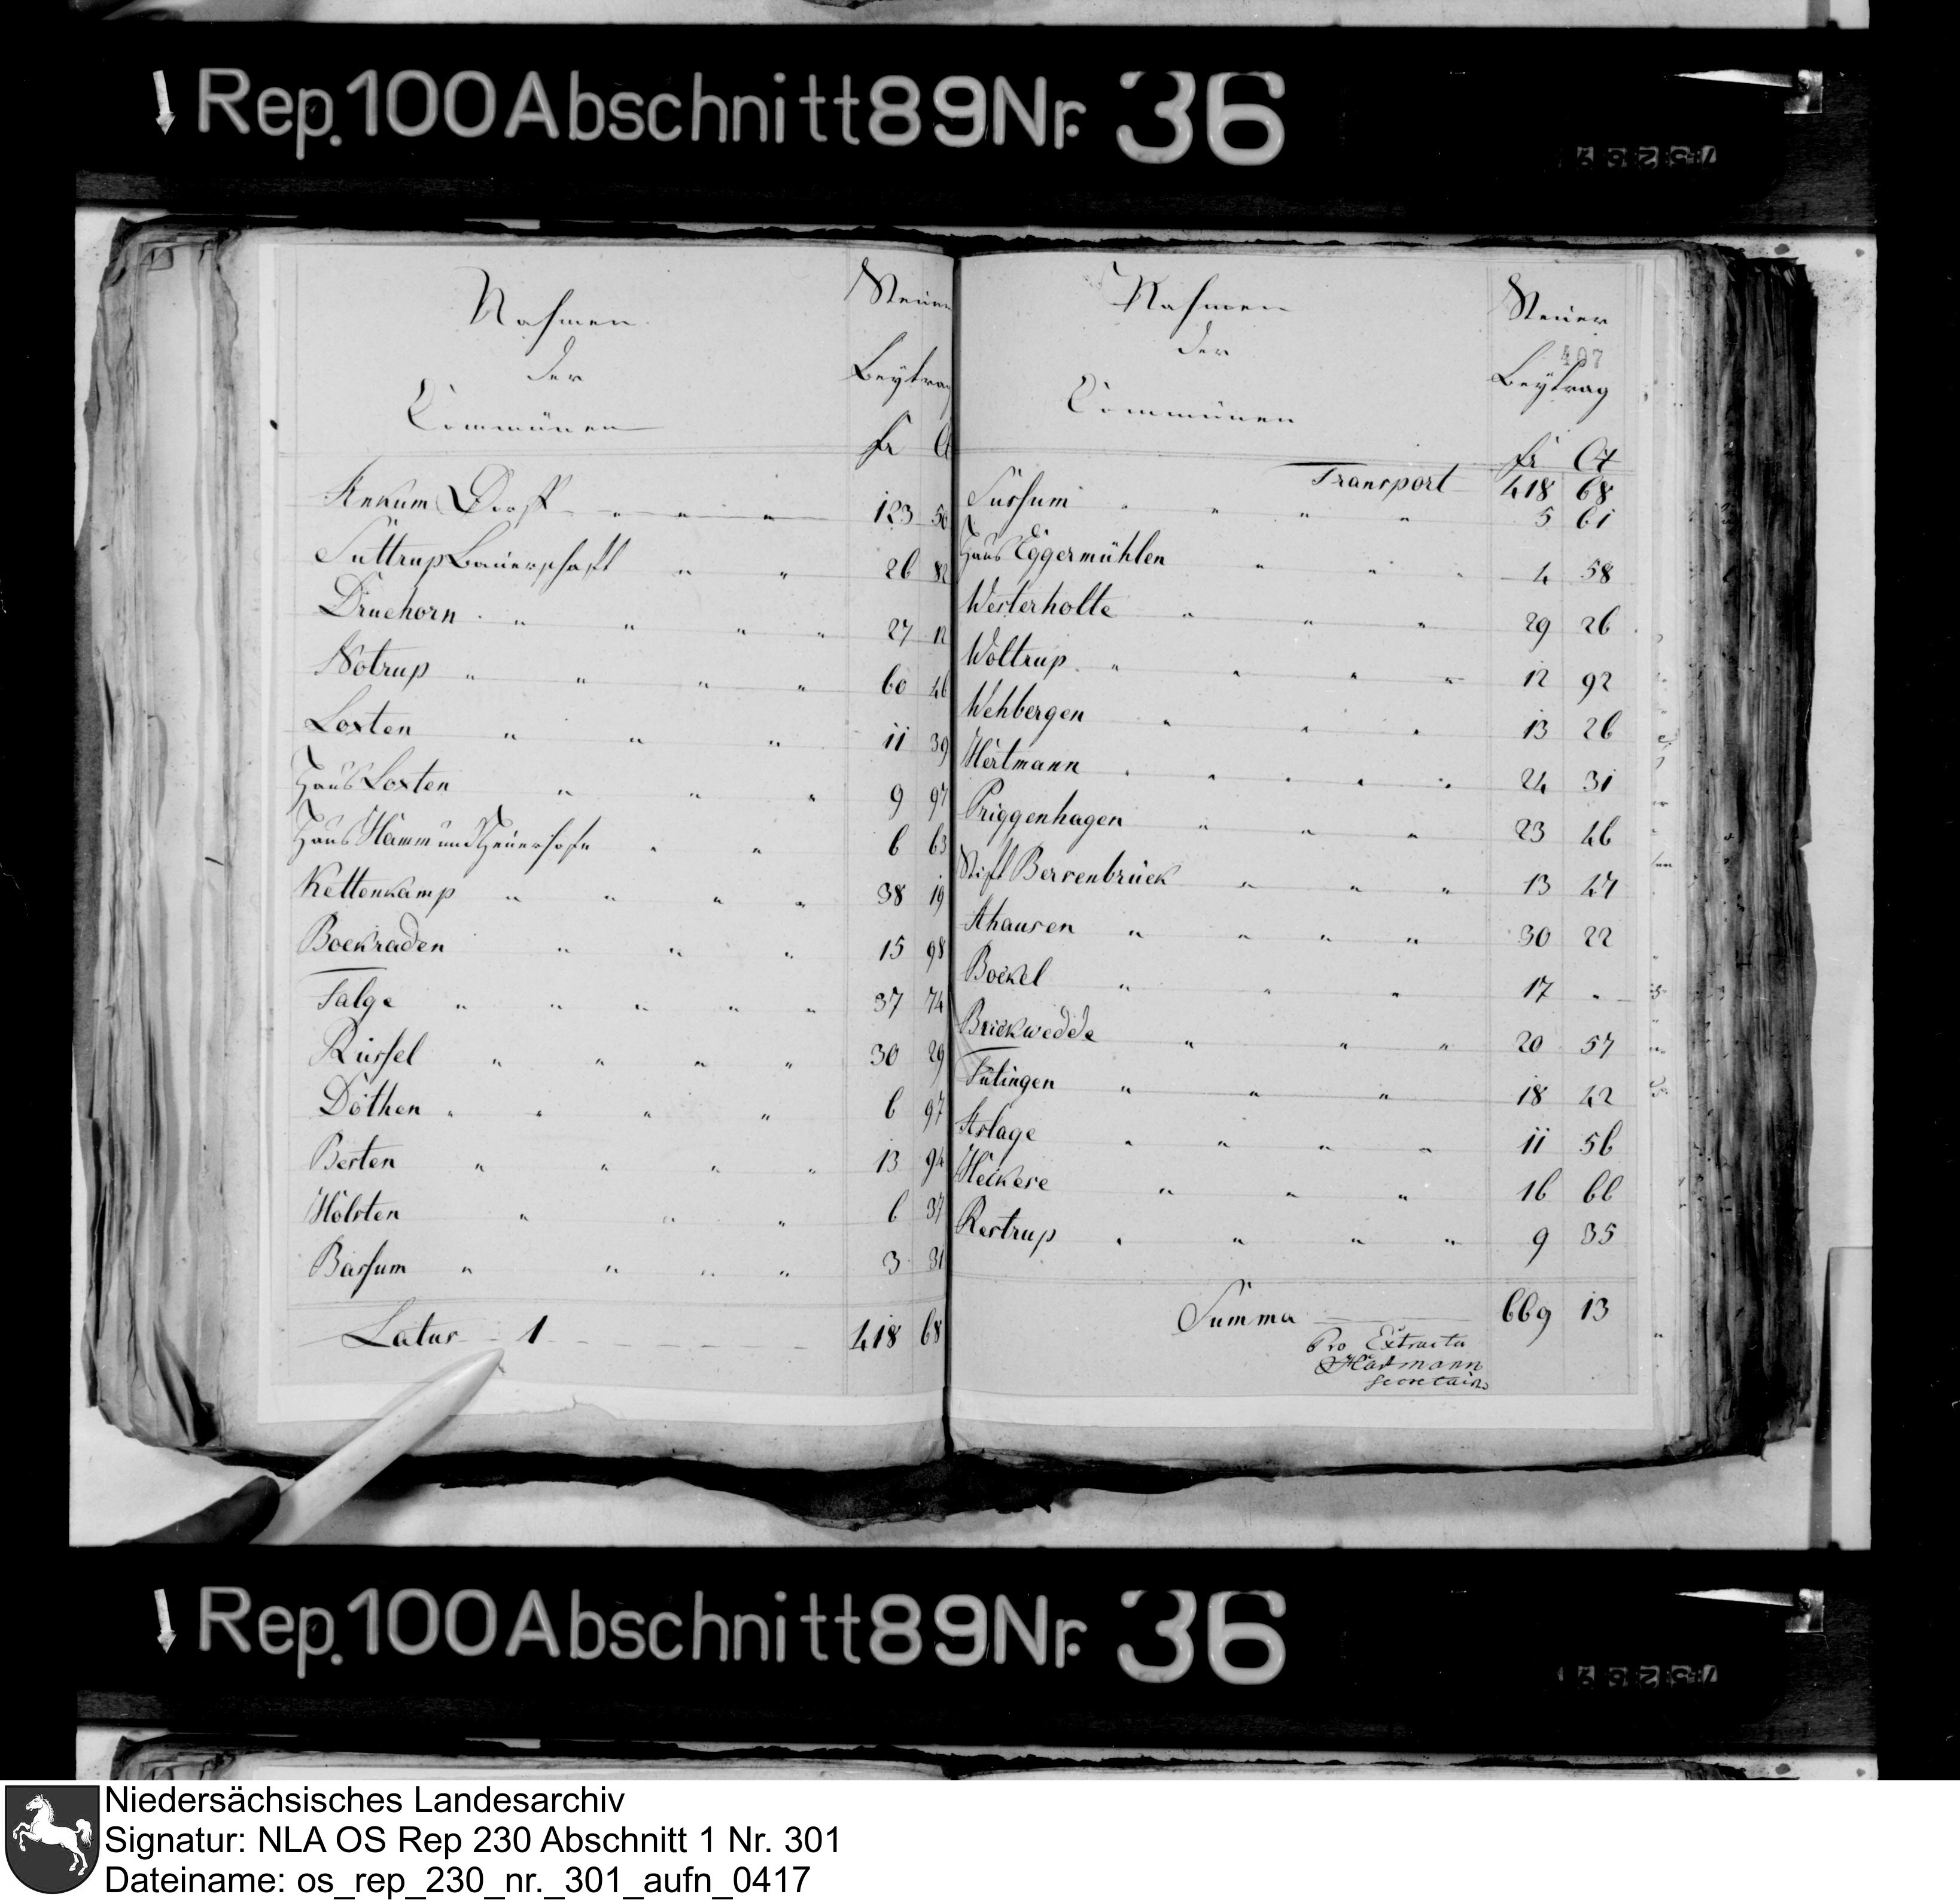 Rep. 100 Abschnitt 89 Nr. 36
Nahmen
der
Commünen
Steuer
Beytrag
fr Ct
Ankum Dorff " " " 123 56
Suttrup Bauerschaft " " 26 82
Druehorn " " " " 27 12
Notrup " " " " 60 46
Loxten " " " 11 39
Haus Loxten " " " 9 97
Haus Hamm und Heuerhofe " " 6 63
Kettenkamp " " " " 38 19
Bockraden " " " 15 98
Talge " " " " " 37 74
Rüssel " " " " 30 29
Döthen " " " " 6 97
Bersten " " " " 13 94
Holsten " " " 6 37
Bassum " " " " 3 31
Latus 1 418 68
Nahmen
der
Commünen
Steuer
407
Beytrag
fr Ct
Transport 418 68
Sussum " " " " 5 61
Haus Eggermühlen " " " 4 58
Westerholte " " " 29 26
Woltrup " " " " 12 92
Wehbergen " " " 13 26
Hertmann " " " " " 24 31
Priggenhagen " " " 23 46
Stift Bersenbrück " " " 13 47
Ahausen " " " " 30 22
Bockel " " " 17 "
Brickwedde " " " 20 57
Tütingen " " " 18 42
Aslage " " " " 11 56
Heckese " " " 16 66
Restrup " " " " 9 35
Summa 669 13
Pro Extractu
Hartmann
secretair
Rep. 100 Abschnitt 89 Nr. 36
Niedersächsisches Landesarchiv
Signatur: NLA OS Rep 230 Abschnitt 1 Nr. 301
Dateiname: os_rep_230_nr._301_aufn_0417